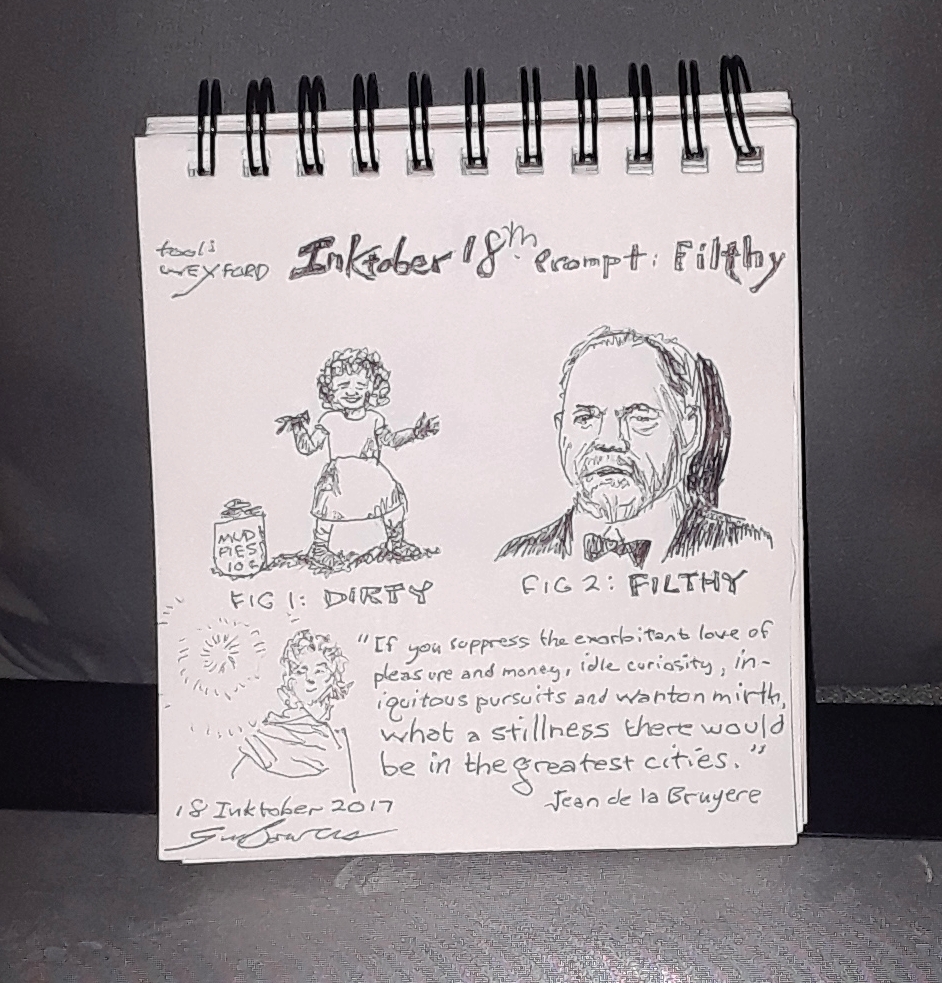 tool:
WEXFORD
Inktober 18th Prompt: Filthy
MUD
PIES
10¢
FIG 1: DIRTY
FIG 2: FILTHY
"If you suppress the exorbitant love of
pleasure and money, idle curiosity, in-
iquitous pursuits and wanton mirth,
what a stillness there would
be in the greatest cities."
Jean de la Bruyere
18 Inktober 2017